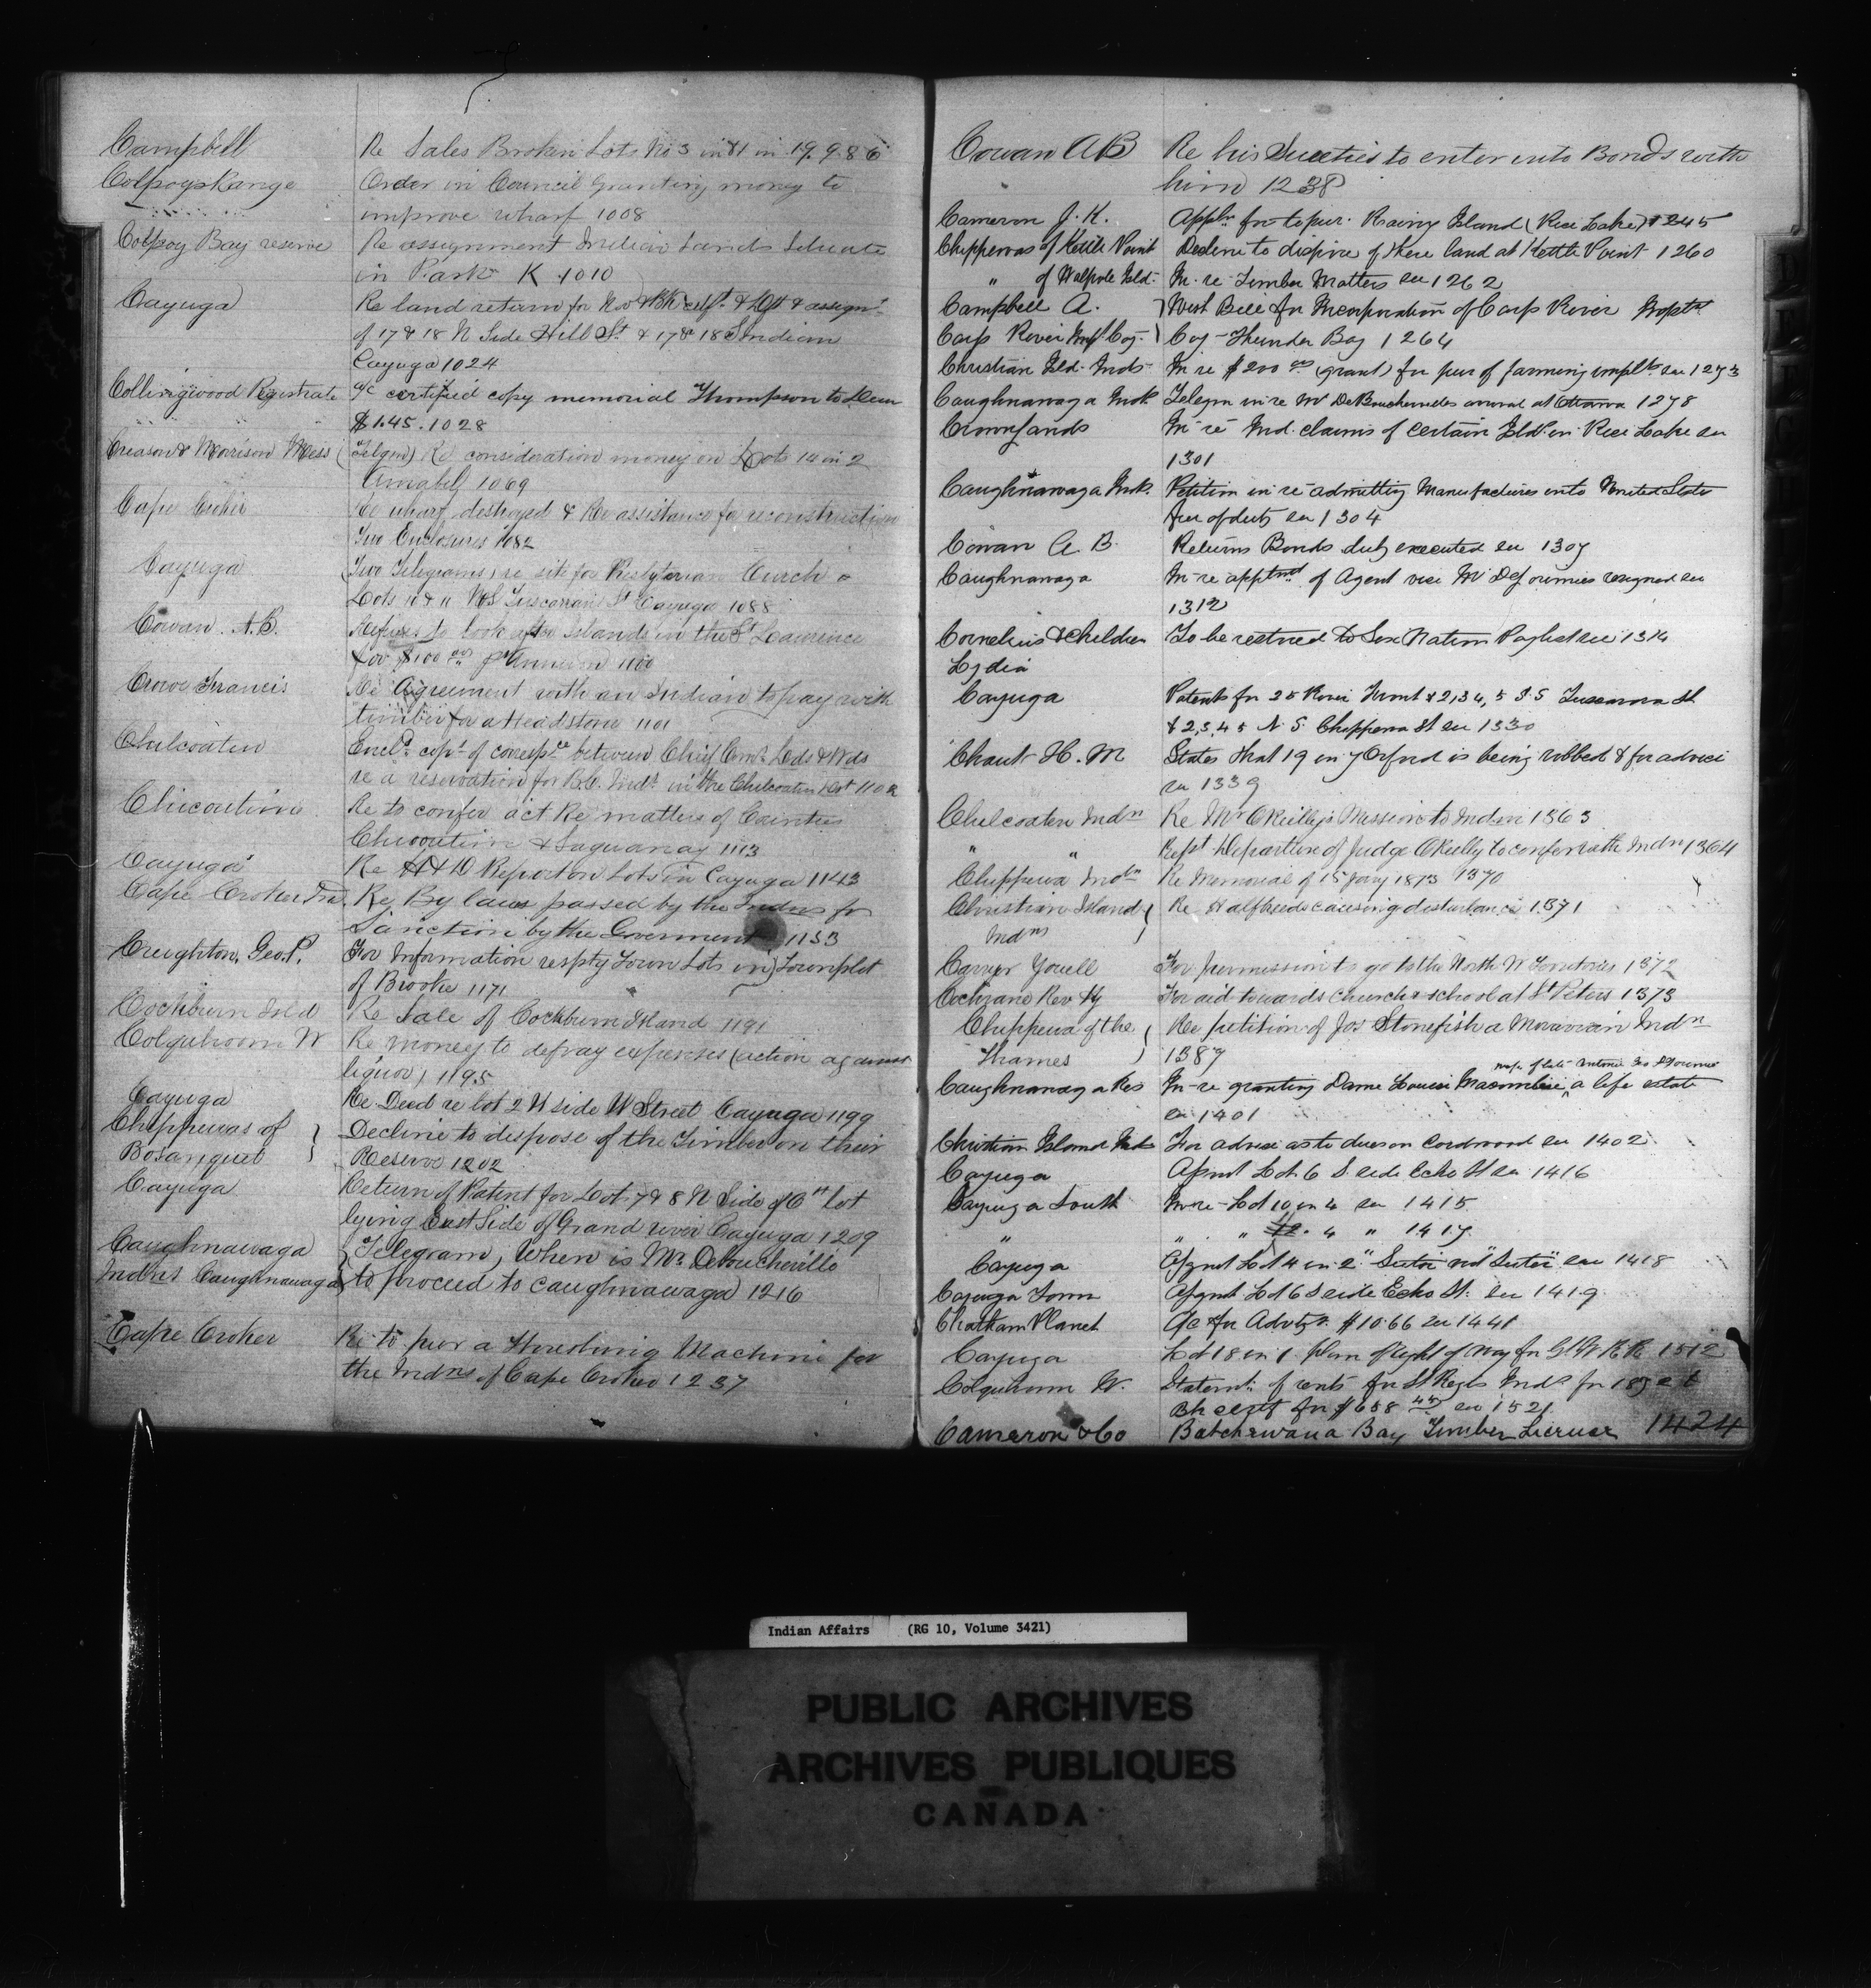 Campbell Re Sales Broken Lots No 3 in 19. 986
Colpoys Range Order in Council granting money to
improve wharf 1008
Colpoy Bay reserve Re assignment Indian Lands Situate
in Park K 1010
Cayuga Re land return for
of 17 & 18 N Side Hill St & 17 & 18 S Indian
Cayuga 1024
Collingwood Registrate a/c certified copy memorial Thompson to
$1.45. 1028
Creasor & Morrison Mess (Telgm) Re consideration money on Lots 14 in 2
Amabel 1069
Cape Croker Re wharf destroyed & Re assistance for reconstruction
Two Enclosures 1082
Cayuga (Two Telegrams) re site for Presbyterian Church
Lots 10 & 11 N S Tuscarora St Cayuga 1088
Cowan. A.B. Refuses to look after Islands in the St Lawrence
for $100 00 pr Annum 1100
Crowe Francis Re Agreement with an Indian to pay with
timber for a Headstone 1101
Chilcoaten Encl. cops of corresp. between Chief Comr Lds & Wds
re a reservation for B.C. Inds in the Chilcoaten Dist 1102
Chicoutimi Re to confer act Re matters of Counties
Chicoutimi & Saguanay 1113
Cayuga Re Report on Lots in Cayuga 1143
Cape Croker Re By laws passed by the Indns for
Sanction by the Goverment 1153
Creighton, Geo. P. For Information respty Town Lots in Townplot
of Brooke 1171
Cockburn Isld Re Sale of Cockburn Island 1191
Colquhoun W Re money to defray expenses (action against
liquor) 1195
Cayuga Re Deed re lot 2 N side W Street Cayuga 1199
Chippewas of Decline to dispose of the Timber on their
Bosanquet Reserve 1202
Cayuga Return of Patent for Lots 7 & 8 N Side of lot
lying East Side of Grand river Cayuga 1209
Caughnawaga (Telegram) When is Mr. Deboucherville
Indns Caughnawaga to proceed to Caughnawaga 1216
Cape Croker Re to pur a Threshing Machine for
the Indns of Cape Croker 1237
Cowan A B Re his Sureties to enter into Bonds with
him 1238
Cameron J. K. Appln for to pur. Rainy Island (Rice Lake) 1245
Chippewas of Kettle Point Decline to dispose of there land at Kettle Point 1260
" of Walpole Isld. In re Timber Matters see 1262
Campbell A. } Bill for Incorporation of Carp River
Carp River Coy. } Coy - Thunder Bay 1264
Christian Isld. Inds In re $200 00 (grant) for pur of farming implts see 1273
Caughnawaga Telegm in re Mr DeBouchervilles arrival at Ottawa 1278
Crown Lands In re Ind. claims of certain Isld. in Rice Lake see
1301
Caughnawaga Petition in re admitting Manufactures into United States
free of duty see 1304
Cowan A. B. Returns Bonds duly executed see 1307
Caughnawaga In re apptmt of Agent vice Mr Delorimier resigned see
1312
Cornelius & Children To be restored to Six Nation Paylist see 1314
Lydia
Cayuga Patents for 25 River Front & 2, 3, 4, 5 S. S Tuscarora St
& 2, 3, 4, 5 N. S. Chippewa St see 1330
Chaut H. M States that 19 in 7 Orford is being robbed & for advice
see 1339
Chilcoaten Indn Re Mr OReilly's Mission to Indn 1363
" " Rept Departure of Judge OReilly to confer with Indn 1364
Chippewa Indn Re Memorial of 15 Jany 1873 1370
Christian Island } Re Halfbreeds causing disturbance 1371
Indns
Carrier Youell For permission to go to the North W Territories 1372
Cochrane Rev Hy For aid towards church & school at St Peters 1373
Chippewa of the } Re petition of Jos Stonefish a Moravian Indn
Thames } 1387
Caughnawaga Res In re granting Dame Louise a life estate
see 1401
Christian Island Inds For advise as to dues on Cordwood see 1402
Cayuga Asmnt Lot 6 S. side Echo St see 1416
Cayuga South In re Lot 10 in 4 see 1415
" " " 4 " 1417
Cayuga Asgnmt Lot 4 in 2 see 1418
Cayuga Town Asgnmt Lot 6 S side Echo St. see 1419
Chatham Planet A/c for Advtg. $10.66 see 1441
Cayuga Lot 18 in 1. plan of right of way for G W R R 1512
Colquhoun W. Statemt. of rents for St Regis Inds for
Bk cert for $658 see 1521
Cameron & Co Batchewana Bay Timber License 1424
Indian Affairs (RG 10, Volume 3421)
PUBLIC ARCHIVES
ARCHIVES PUBLIQUES
CANADA